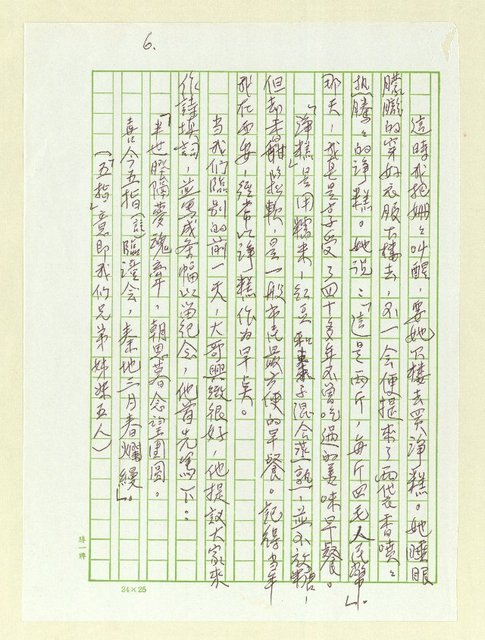 6.
這時我把姍姍叫醒，要她下樓去買淨糕。她睡眼
朦朧的穿好衣服下樓去，不一會便提來了兩袋香噴噴
熱騰騰的淨糕。她說：「這是兩斤，每斤四毛人民幣」。
那天，我是享受了四十多年不曾吃過的美味早餐。
「淨糕」是用糯米，紅豆和棗子混合蒸熟，並不放糖，
但却香甜鬆軟，是一般市民最方便的早餐。記得當年
我在西安，經常以淨糕作為早美。
當我們臨別的前一天，大哥興緻很好，他提議大家來
作詩填詞，並寫成條幅以留紀念，他首先寫下：
「半世睽隔夢魂牽，朝思暮念望團圓。
喜今五指(註)臨潼會，秦地三月春爛縵」。
(「五指」意即我們兄弟姊妹五人)
24×25